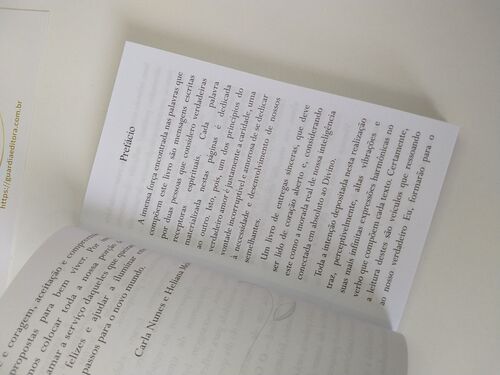 https://guardiaeditora.com.br
e coragem, aceitação e
propostas para bem viver. Por
mos colocar toda a nossa porção
amar a serviço daqueles que
felizes e ajudar a iluminar os
passos para o novo mundo.
Carla Nunes e Heliana
Prefácio
A imensa força encontrada nas palavras que
compõem este livro são mensagens escritas
por duas pessoas que considero verdadeiras
receptoras espirituais. Cada palavra
materializada nestas páginas é dedicada
ao outro. Isto, pois, um dos princípios do
verdadeiro amor é justamente a caridade, uma
vontade incorruptível e amorosa de se dedicar
à necessidade e desenvolvimento de nossos
semelhantes.
Um livro de entregas sinceras, que deve
ser lido de coração aberto e, considerando
este como a morada real de nossa inteligência
conectada em absoluto ao Divino.
Toda a intenção depositada nesta realização
traz, perceptivelmente, altas vibrações e
suas mais infinitas expressões harmônicas no
verbo que compõem cada texto. Certamente,
a leitura destes são veículos que ressoando
ao nosso verdadeiro Eu, formarão para o